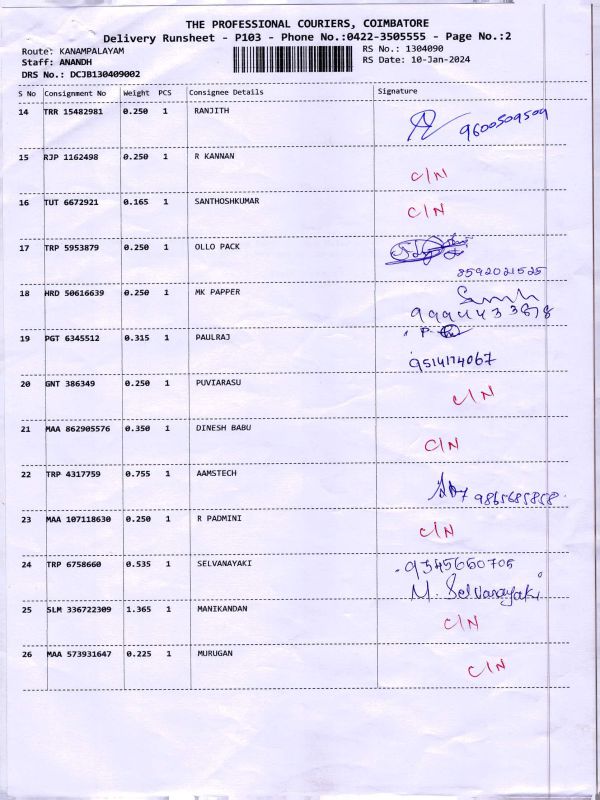 THE PROFESSIONAL COURIERS, COIMBATORE
Delivery Runsheet - P103 - Phone No.:0422-3505555 - Page No.:2
Route: KANAMPALAYAM RS No.: 1304090
Staff: ANANDH RS Date: 10-Jan-2024
DRS No.: DCJB130409002
S No Consignment No Weight PCS Consignee Details Signature
14 TRR 15482981 0.250 1 RANJITH
9600509509
15 RJP 1162498 0.250 1 R KANNAN
C/N
16 TUT 6672921 0.165 1 SANTHOSHKUMAR
C/N
17 TRP 5953879 0.250 1 OLLO PACK
8592021525
18 HRD 50616639 0.250 1 MK PAPPER
9994433878
19 PGT 6345512 0.315 1 PAULRAJ
9514174067
20 GNT 386349 0.250 1 PUVIARASU
C/N
21 MAA 862905576 0.350 1 DINESH BABU
C/N
22 TRP 4317759 0.755 1 AAMSTECH
9865685858
23 MAA 107118630 0.250 1 R PADMINI
C/N
24 TRP 6758660 0.535 1 SELVANAYAKI
9345660705
M. Selvanayaki
25 SLM 336722309 1.365 1 MANIKANDAN
C/N
26 MAA 573931647 0.225 1 MURUGAN
C/N